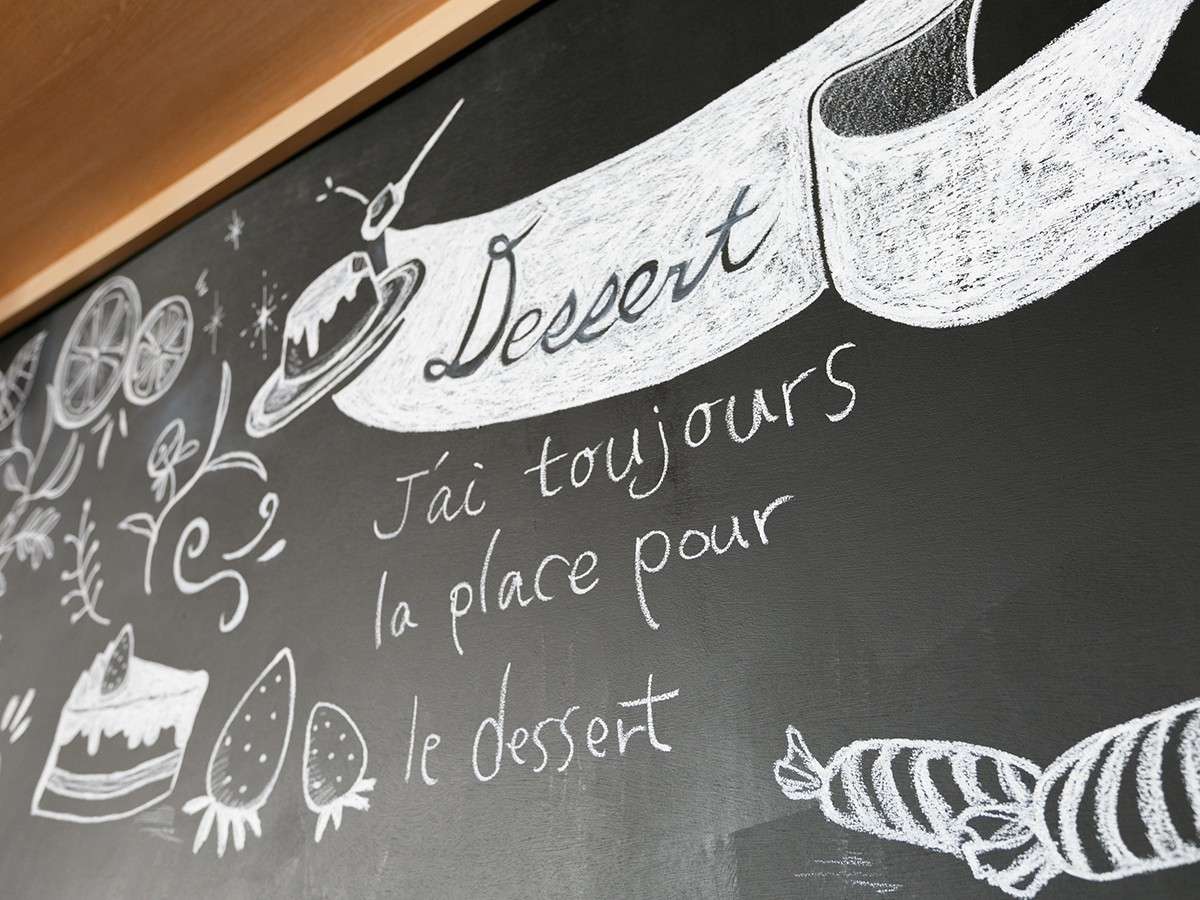 Dessert
J'ai toujours
la place pour
le dessert